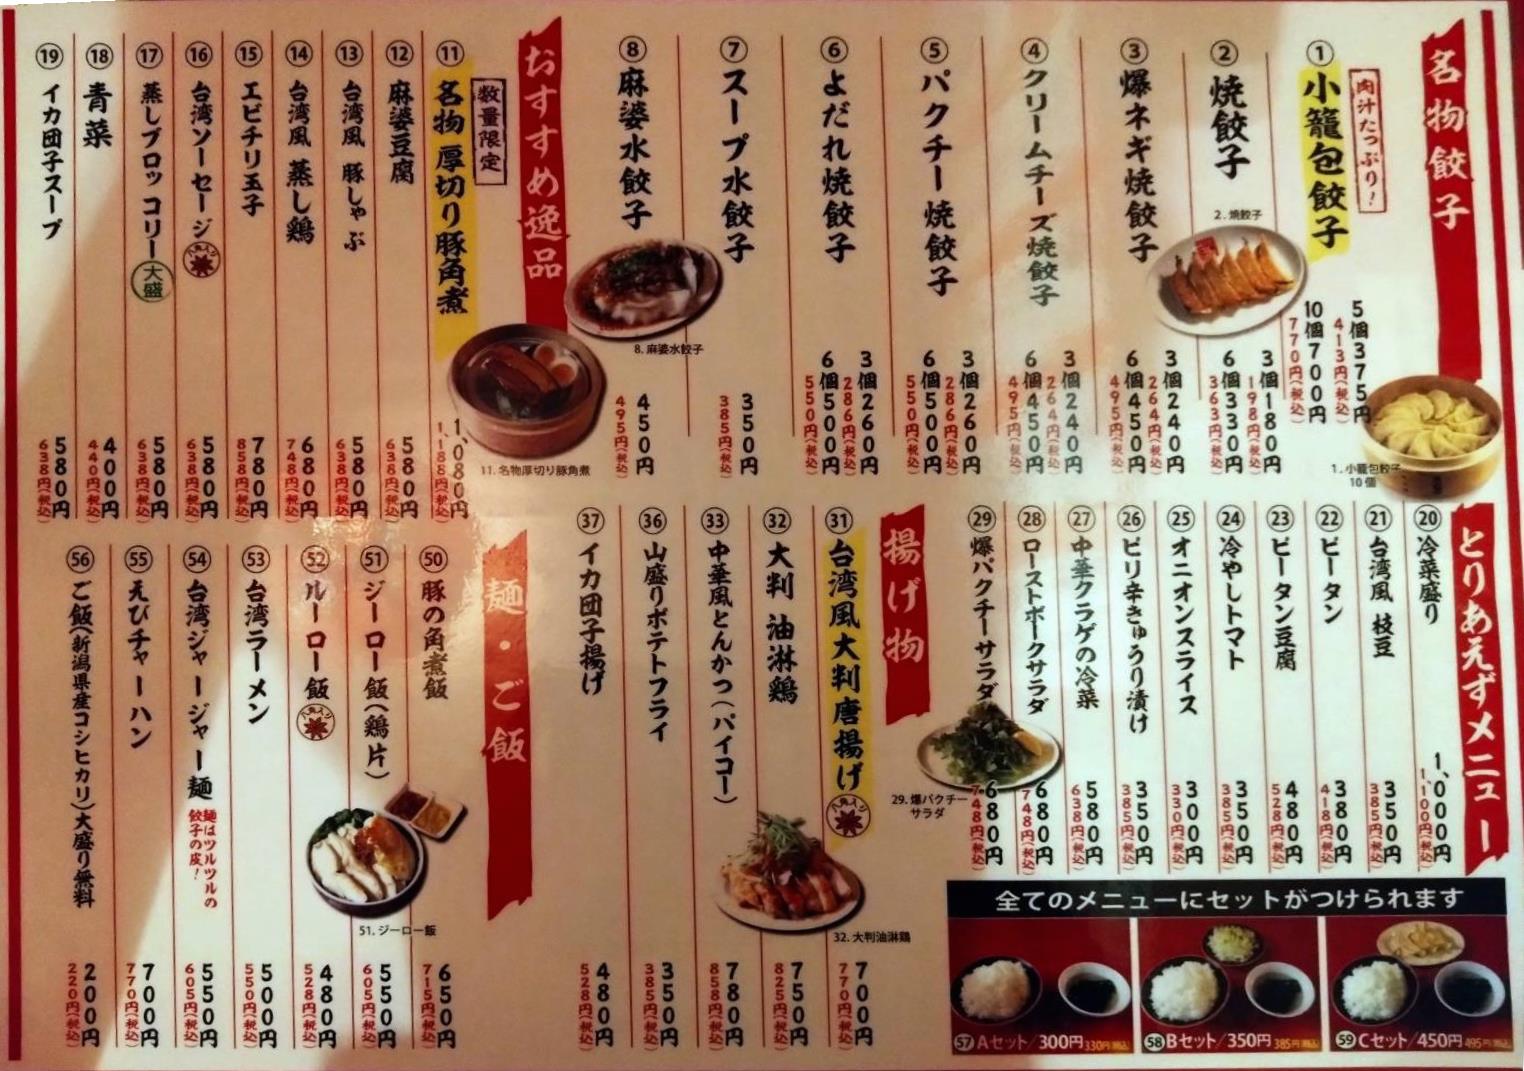 名物餃子
肉汁たっぷり!
① 小籠包餃子
5個375円
413円(税込)
10個700円
770円(税込)
1.小籠包餃子
10個
② 焼餃子
2.焼餃子
3個180円
198円(税込)
6個330円
363円(税込)
③ 爆ネギ焼餃子
3個240円
264円(税込)
6個450円
495円(税込)
④ クリームチーズ焼餃子
3個240円
264円(税込)
6個450円
495円(税込)
⑤ パクチー焼餃子
3個260円
286円(税込)
6個500円
550円(税込)
⑥ よだれ焼餃子
3個260円
286円(税込)
6個500円
550円(税込)
⑦ スープ水餃子
350円
385円(税込)
⑧ 麻婆水餃子
8.麻婆水餃子
450円
495円(税込)
おすすめ逸品
数量限定
⑪ 名物 厚切り豚角煮
11.名物厚切り豚角煮
1,080円
1,188円(税込)
⑫ 麻婆豆腐
580円
638円(税込)
⑬ 台湾風 豚しゃぶ
580円
638円(税込)
⑭ 台湾風 蒸し鶏
680円
748円(税込)
⑮ エビチリ玉子
780円
858円(税込)
⑯ 台湾ソーセージ 八角入り
580円
638円(税込)
⑰ 蒸しブロッコリー 大盛
580円
638円(税込)
⑱ 青菜
400円
440円(税込)
⑲ イカ団子スープ
580円
638円(税込)
とりあえずメニュー
⑳ 冷菜盛り
1,000円
1,100円(税込)
㉑ 台湾風 枝豆
350円
385円(税込)
㉒ ピータン
380円
418円(税込)
㉓ ピータン豆腐
480円
528円(税込)
㉔ 冷やしトマト
350円
385円(税込)
㉕ オニオンスライス
300円
330円(税込)
㉖ ピリ辛きゅうり漬け
350円
385円(税込)
㉗ 中華クラゲの冷菜
580円
638円(税込)
㉘ ローストポークサラダ
680円
748円(税込)
㉙ 爆パクチーサラダ
29.爆パクチー
サラダ
680円
748円(税込)
揚げ物
㉛ 台湾風大判唐揚げ 八角入り
700円
770円(税込)
㉜ 大判 油淋鶏
32.大判油淋鶏
750円
825円(税込)
㉝ 中華風とんかつ(パイコー)
780円
858円(税込)
㊱ 山盛りポテトフライ
350円
385円(税込)
㊲ イカ団子揚げ
480円
528円(税込)
麺・ご飯
㊿ 豚の角煮飯
650円
715円(税込)
51 ジーロー飯(鶏片)
51.ジーロー飯
550円
605円(税込)
52 ルーロー飯 八角入り
480円
528円(税込)
53 台湾ラーメン
500円
550円(税込)
54 台湾ジャージャー麺
麺はツルツルの
餃子の皮!
550円
605円(税込)
55 えびチャーハン
700円
770円(税込)
56 ご飯(新潟県産コシヒカリ)大盛り無料
200円
220円(税込)
全てのメニューにセットがつけられます
57 Aセット/300円 330円(税込)
58 Bセット/350円 385円(税込)
59 Cセット/450円 495円(税込)